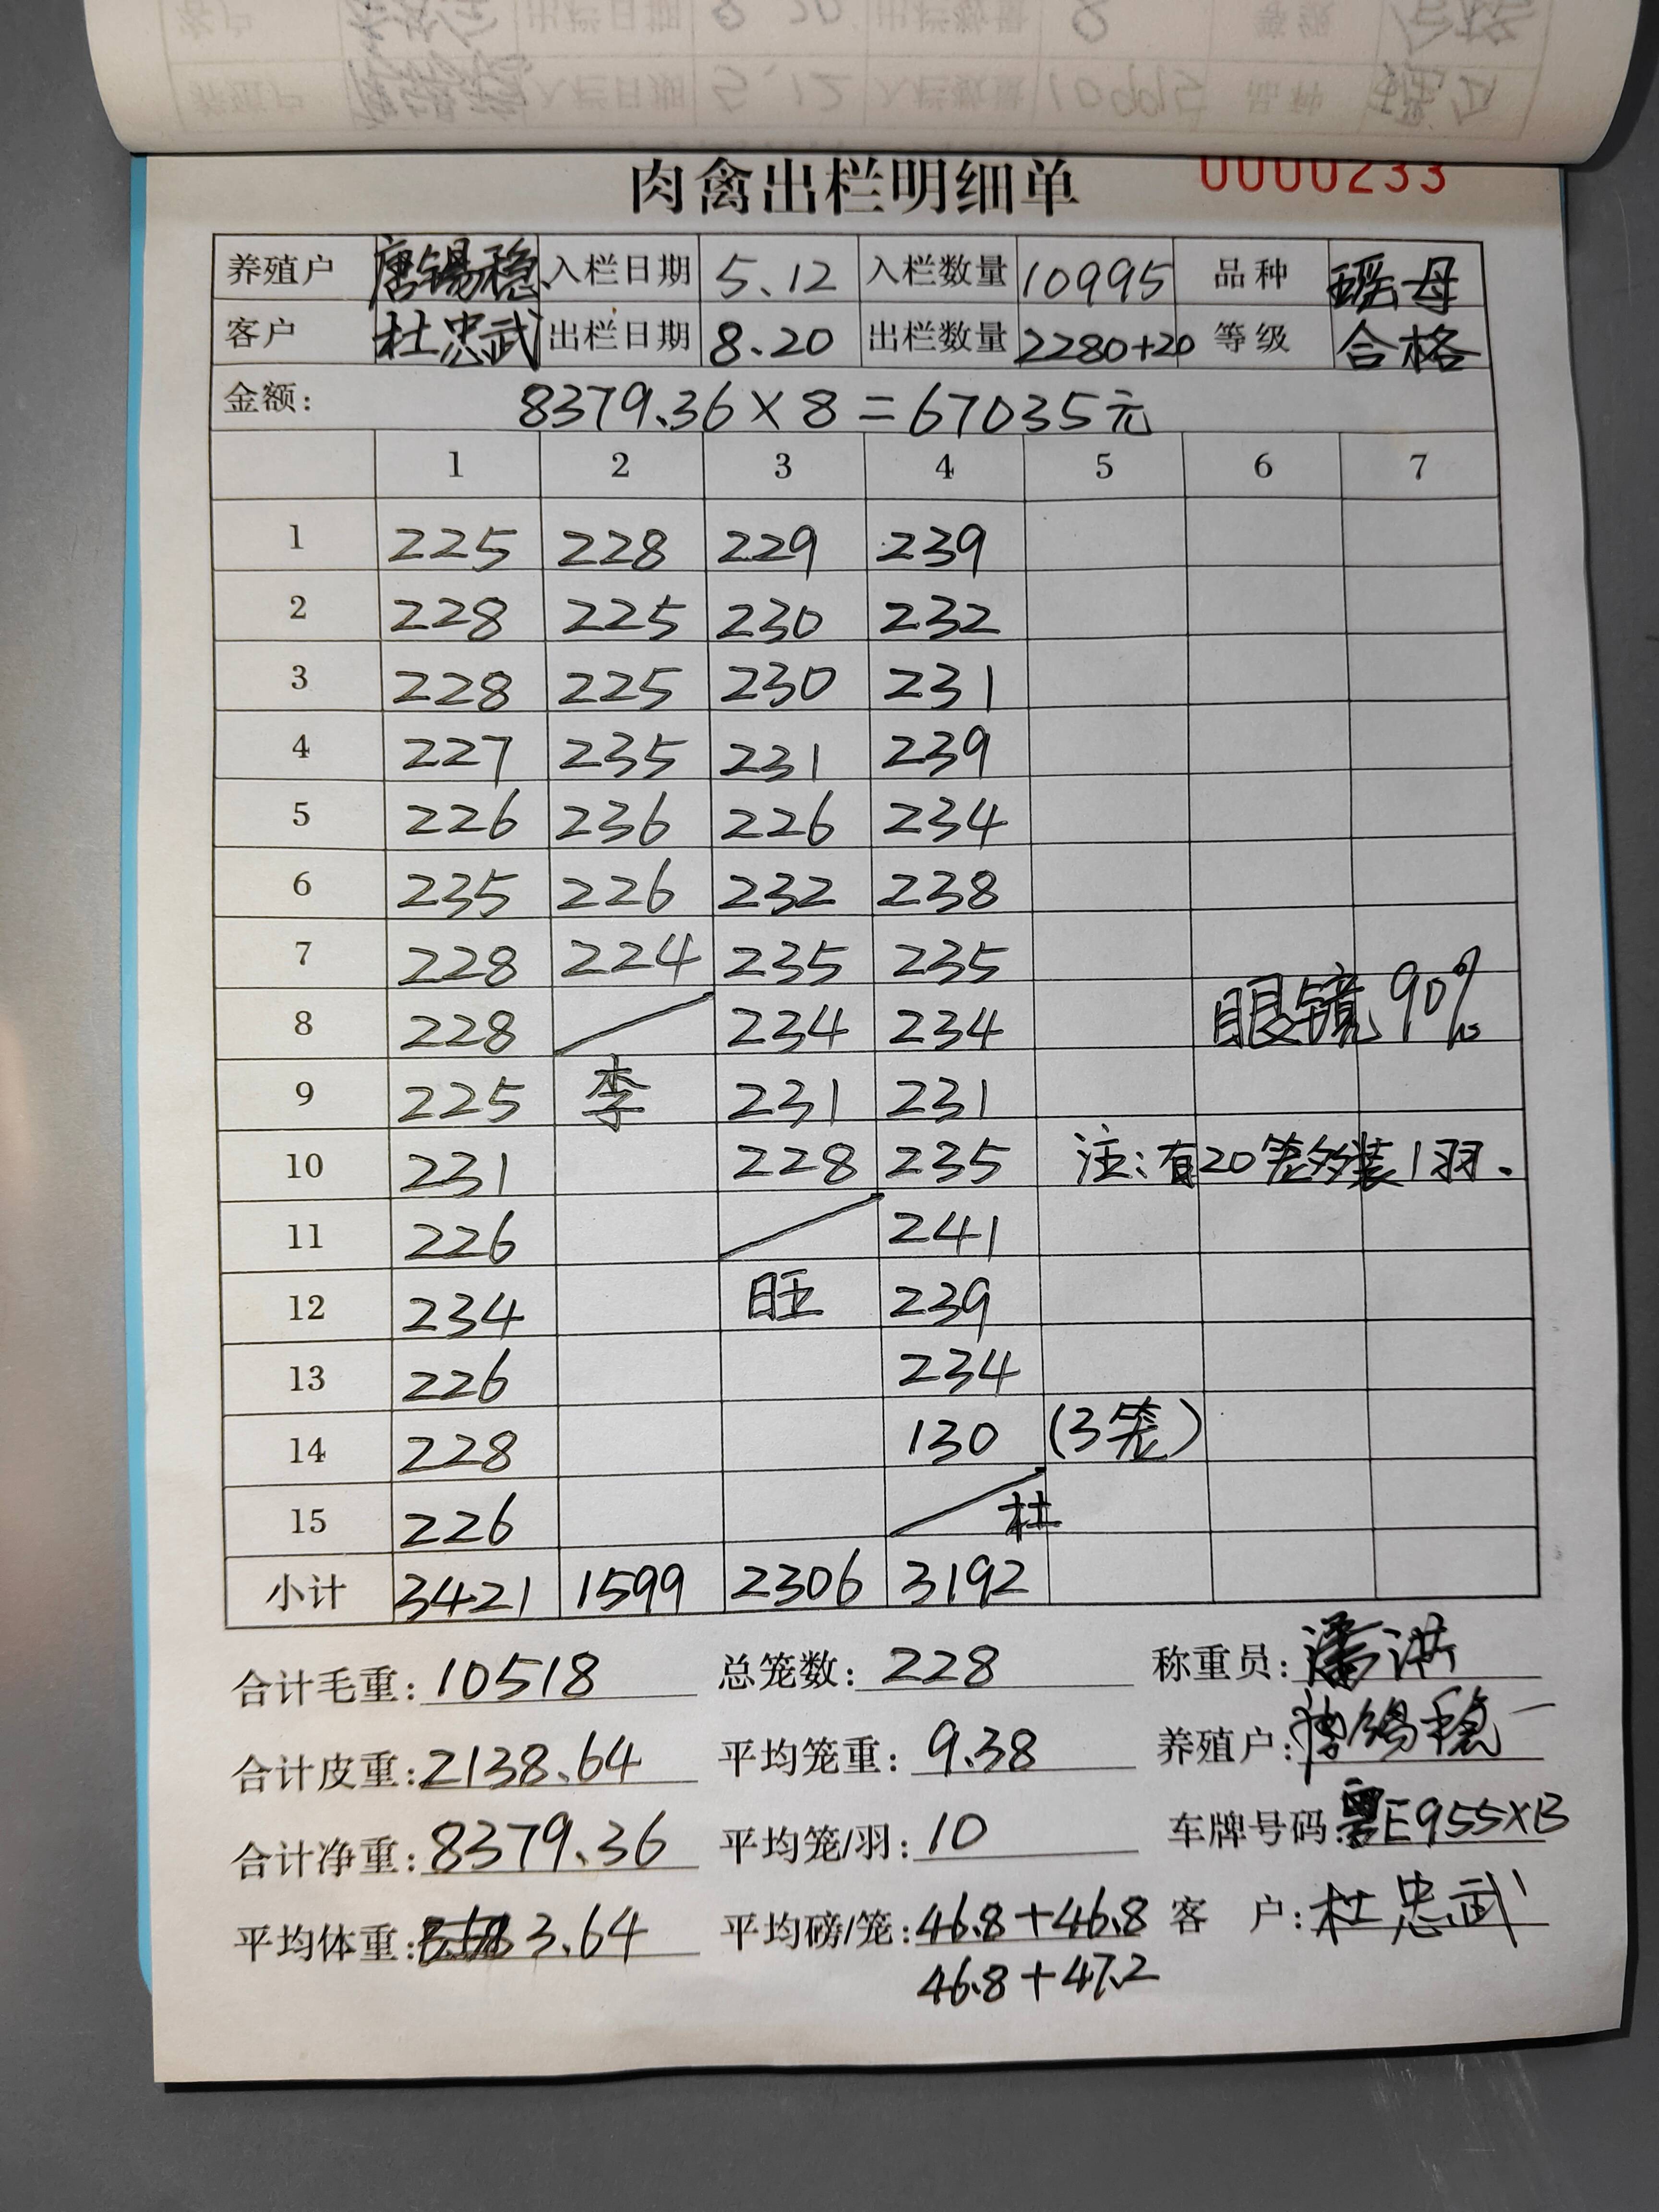 肉禽出栏明细单 0000233
养殖户 唐锡稳 入栏日期 5.12 入栏数量 10995 品种 瑶母
客户 杜忠武 出栏日期 8.20 出栏数量 2280+20 等级 合格
金额: 8379.36×8=67035元
1 2 3 4 5 6 7
1 225 228 229 239
2 228 225 230 232
3 228 225 230 231
4 227 235 231 239
5 226 236 226 234
6 235 226 232 238
7 228 224 235 235
8 228 234 234 眼镜90%
9 225 李 231 231
10 231 228 235 注:有20笼多装1羽.
11 226 241
12 234 旺 239
13 226 234
14 228 130 (3笼)
15 226 杜
小计 3421 1599 2306 3192
合计毛重: 10518 总笼数: 228 称重员: 潘洪
合计皮重: 2138.64 平均笼重: 9.38 养殖户: 唐锡稳
合计净重: 8379.36 平均笼/羽: 10 车牌号码: 粤E955XB
平均体重: 3.64 平均磅/笼: 46.8+46.8 客 户: 杜忠武
46.8+47.2